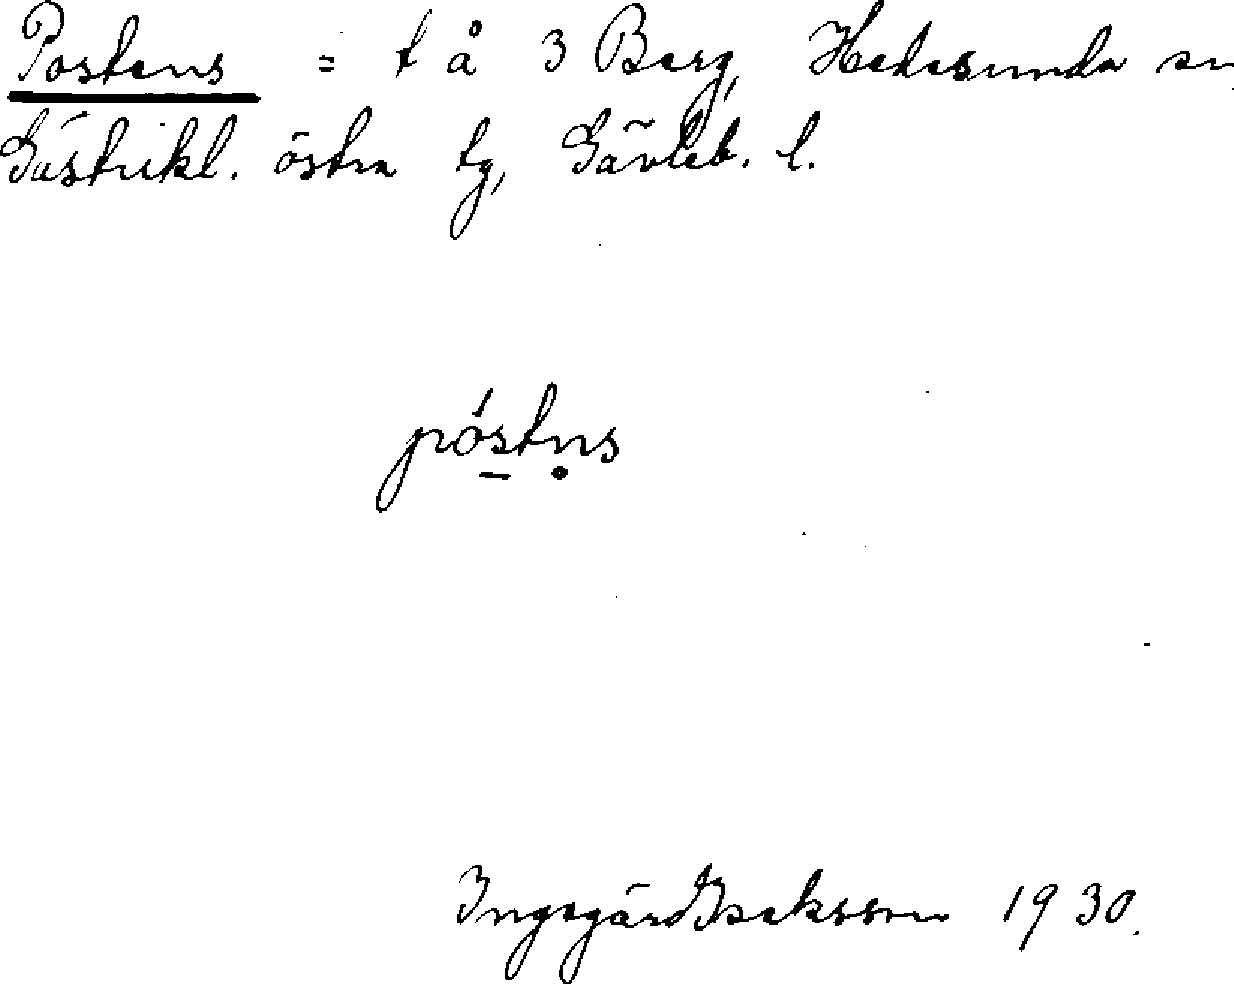 Postens = t å 3 Berg, Hedesunda sn
Gästrikl. östra tg, Gävleb. l.
póstns
Ingegärd Isaksson 1930.